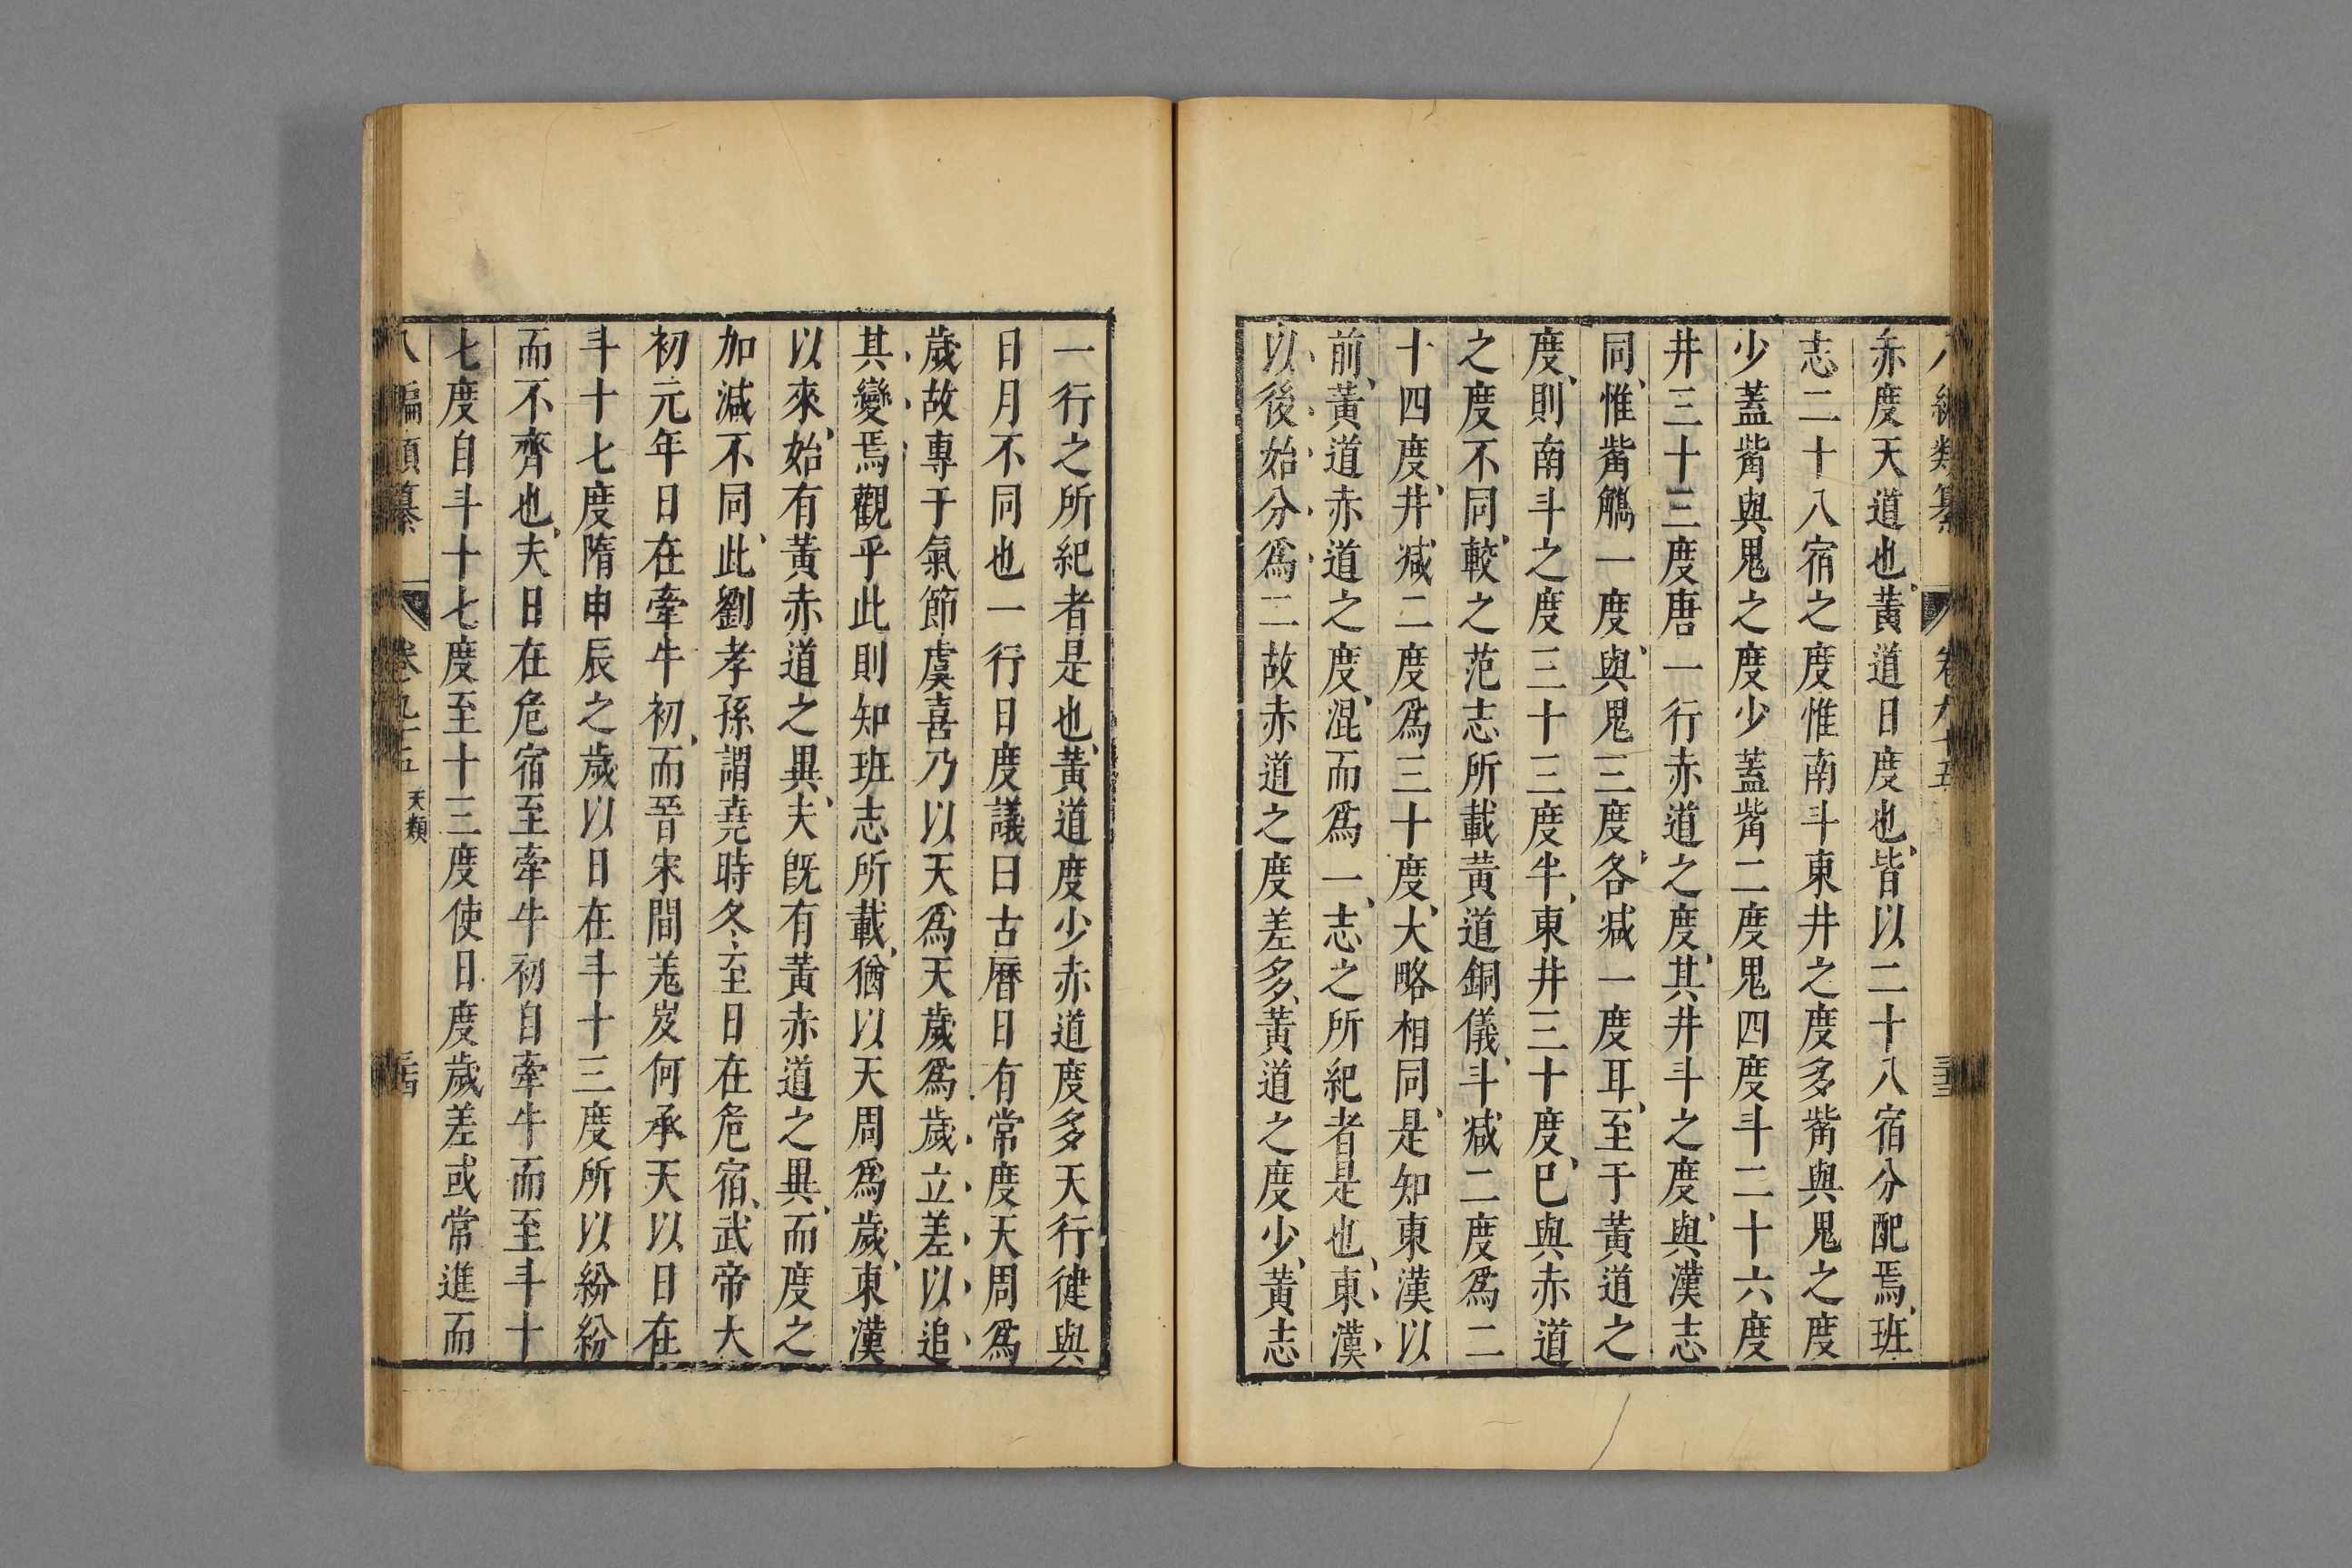 八編類纂 卷九十五 三十三
赤度天道也黃道日度也皆以二十八宿分配焉班
志二十八宿之度惟南斗東井之度多觜與鬼之度
少蓋觜與鬼之度少蓋觜二度鬼四度斗二十六度
井三十三度唐一行赤道之度其井斗之度與漢志
同惟觜觿一度與鬼三度各减一度耳至于黃道之
度則南斗之度三十三度半東井三十度巳與赤道
之度不同較之范志所載黃道銅儀斗减二度爲二
十四度井减二度爲三十度大略相同是知東漢以
前黃道赤道之度混而爲一志之所紀者是也東漢
以後始分爲二故赤道之度差多黃道之度少黃志
一行之所紀者是也黃道度少赤道度多天行徤與
日月不同也一行日度議曰古曆日有常度天周爲
歲故專于氣節虞喜乃以天爲天歲爲歲立差以追
其變焉觀乎此則知班志所載猶以天周爲歲東漢
以來始有黃赤道之異夫旣有黃赤道之異而度之
加減不同此劉孝孫謂堯時冬至日在危宿武帝大
初元年日在牽牛初而晉宋間羗岌何承天以日在
斗十七度隋申辰之歲以日在斗十三度所以紛紛
而不齊也夫日在危宿至牽牛初自牽牛而至斗十
七度自斗十七度至十三度使日度歲差或常進而
八編類纂 卷九十五 天類 三十四